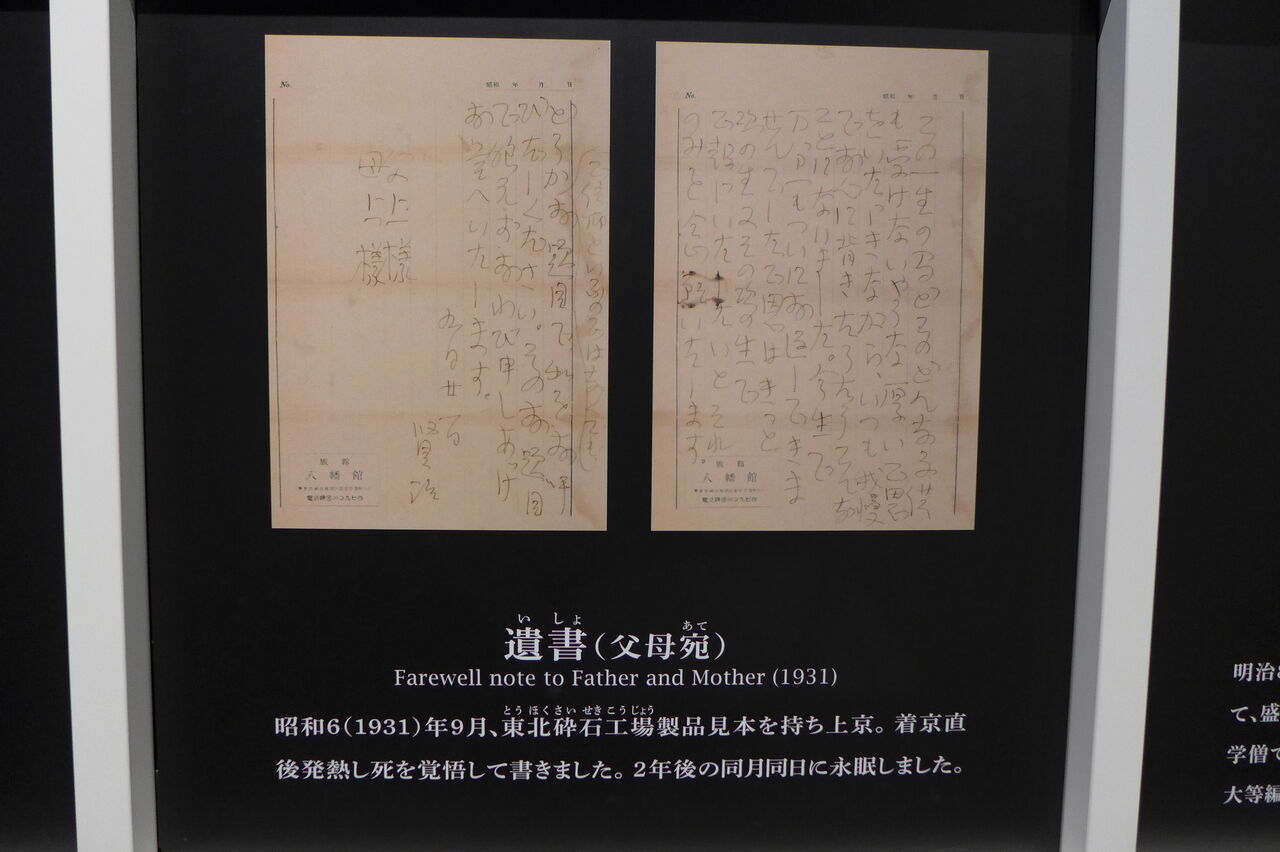 No.　昭和　年　月　日
この一生の間どこのどんな子供
も受けないやうな厚いご恩
をいたゞきながら、いつも我慢
でお心に背きたうたうこんな
ことになりました。今生で
万分一もついにお返しできま
せんでしたご恩はきっと
次の生又その次の生で
ご報じいたしたいとそれ
のみを念願いたします。
旅館
八幡館
No.　昭和　年　月　日
ご信仰といふのではなくても
どうかお題目で私をお呼
びだしください。そのお題目
で絶えずおわび申しあげ
お答へいたします。
九月廿一日
賢治
父上様
母上様
旅館
八幡館
遺書(父母宛)
Farewell note to Father and Mother (1931)
昭和6(1931)年9月、東北砕石工場製品見本を持ち上京。着京直
後発熱し死を覚悟して書きました。2年後の同月同日に永眠しました。
明治
て、盛
学僧で
大等編